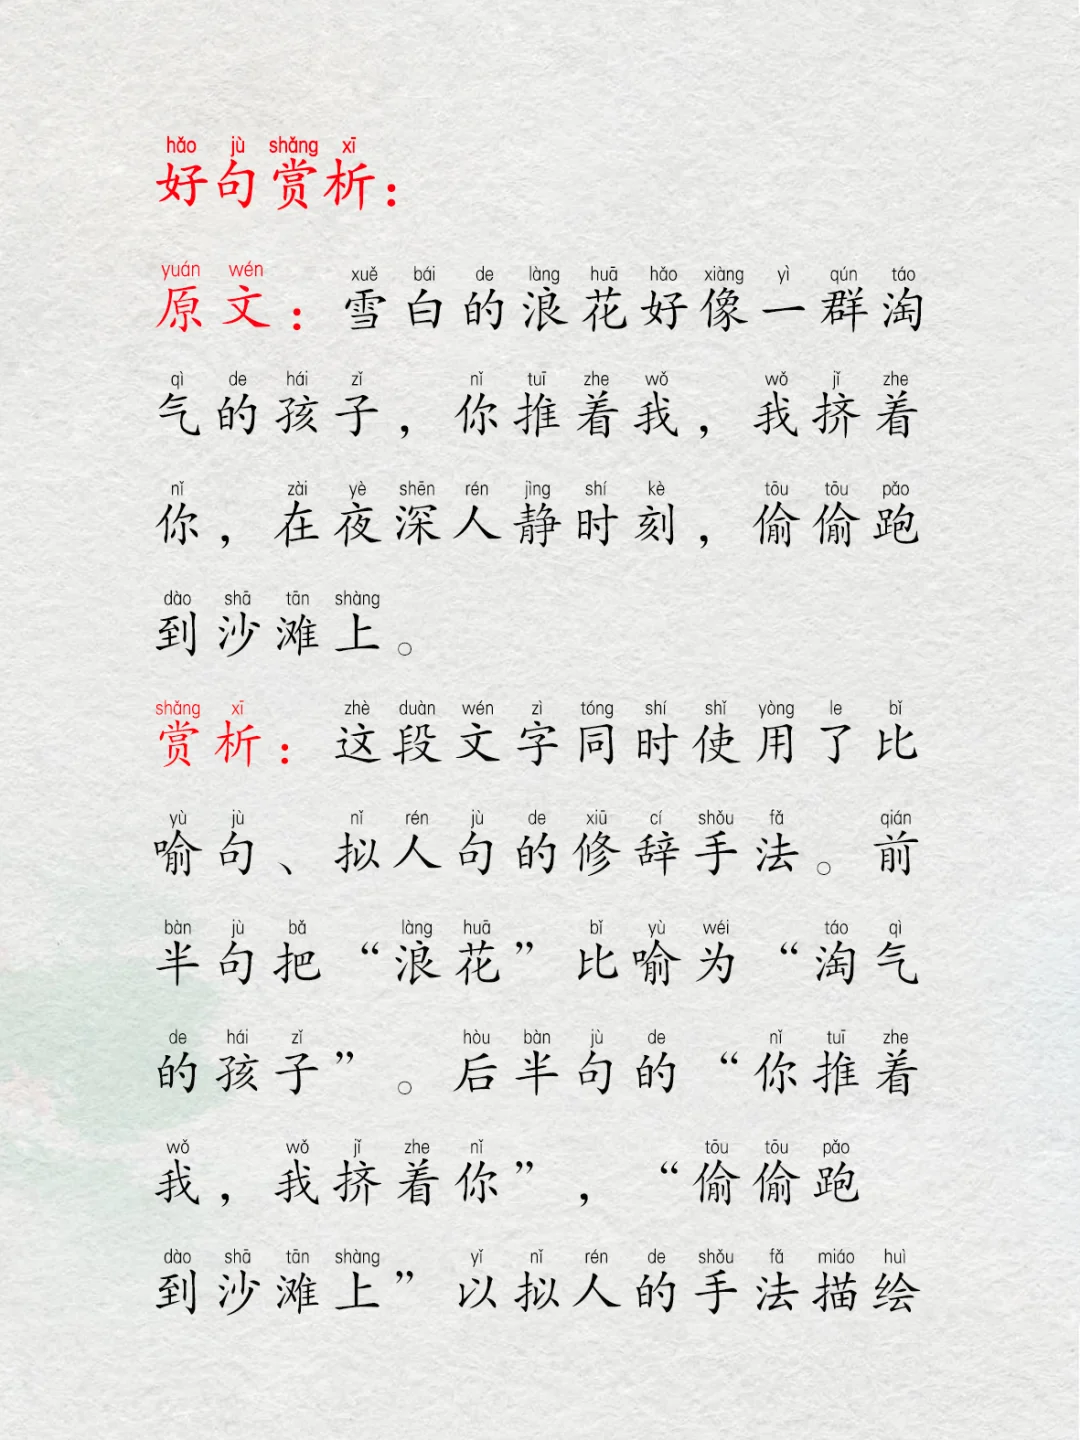 hǎo jù shǎng xī
好句赏析：
yuán wén xuě bái de làng huā hǎo xiàng yì qún táo
原文：雪白的浪花好像一群淘
qì de hái zǐ nǐ tuī zhe wǒ wǒ jǐ zhe
气的孩子，你推着我，我挤着
nǐ zài yè shēn rén jìng shí kè tōu tōu pǎo
你，在夜深人静时刻，偷偷跑
dào shā tān shàng
到沙滩上。
shǎng xī zhè duàn wén zì tóng shí shǐ yòng le bǐ
赏析：这段文字同时使用了比
yù jù nǐ rén jù de xiū cí shǒu fǎ qián
喻句、拟人句的修辞手法。前
bàn jù bǎ làng huā bǐ yù wéi táo qì
半句把“浪花”比喻为“淘气
de hái zǐ hòu bàn jù de nǐ tuī zhe
的孩子”。后半句的“你推着
wǒ wǒ jǐ zhe nǐ tōu tōu pǎo
我，我挤着你”，“偷偷跑
dào shā tān shàng yǐ nǐ rén de shǒu fǎ miáo huì
到沙滩上”以拟人的手法描绘